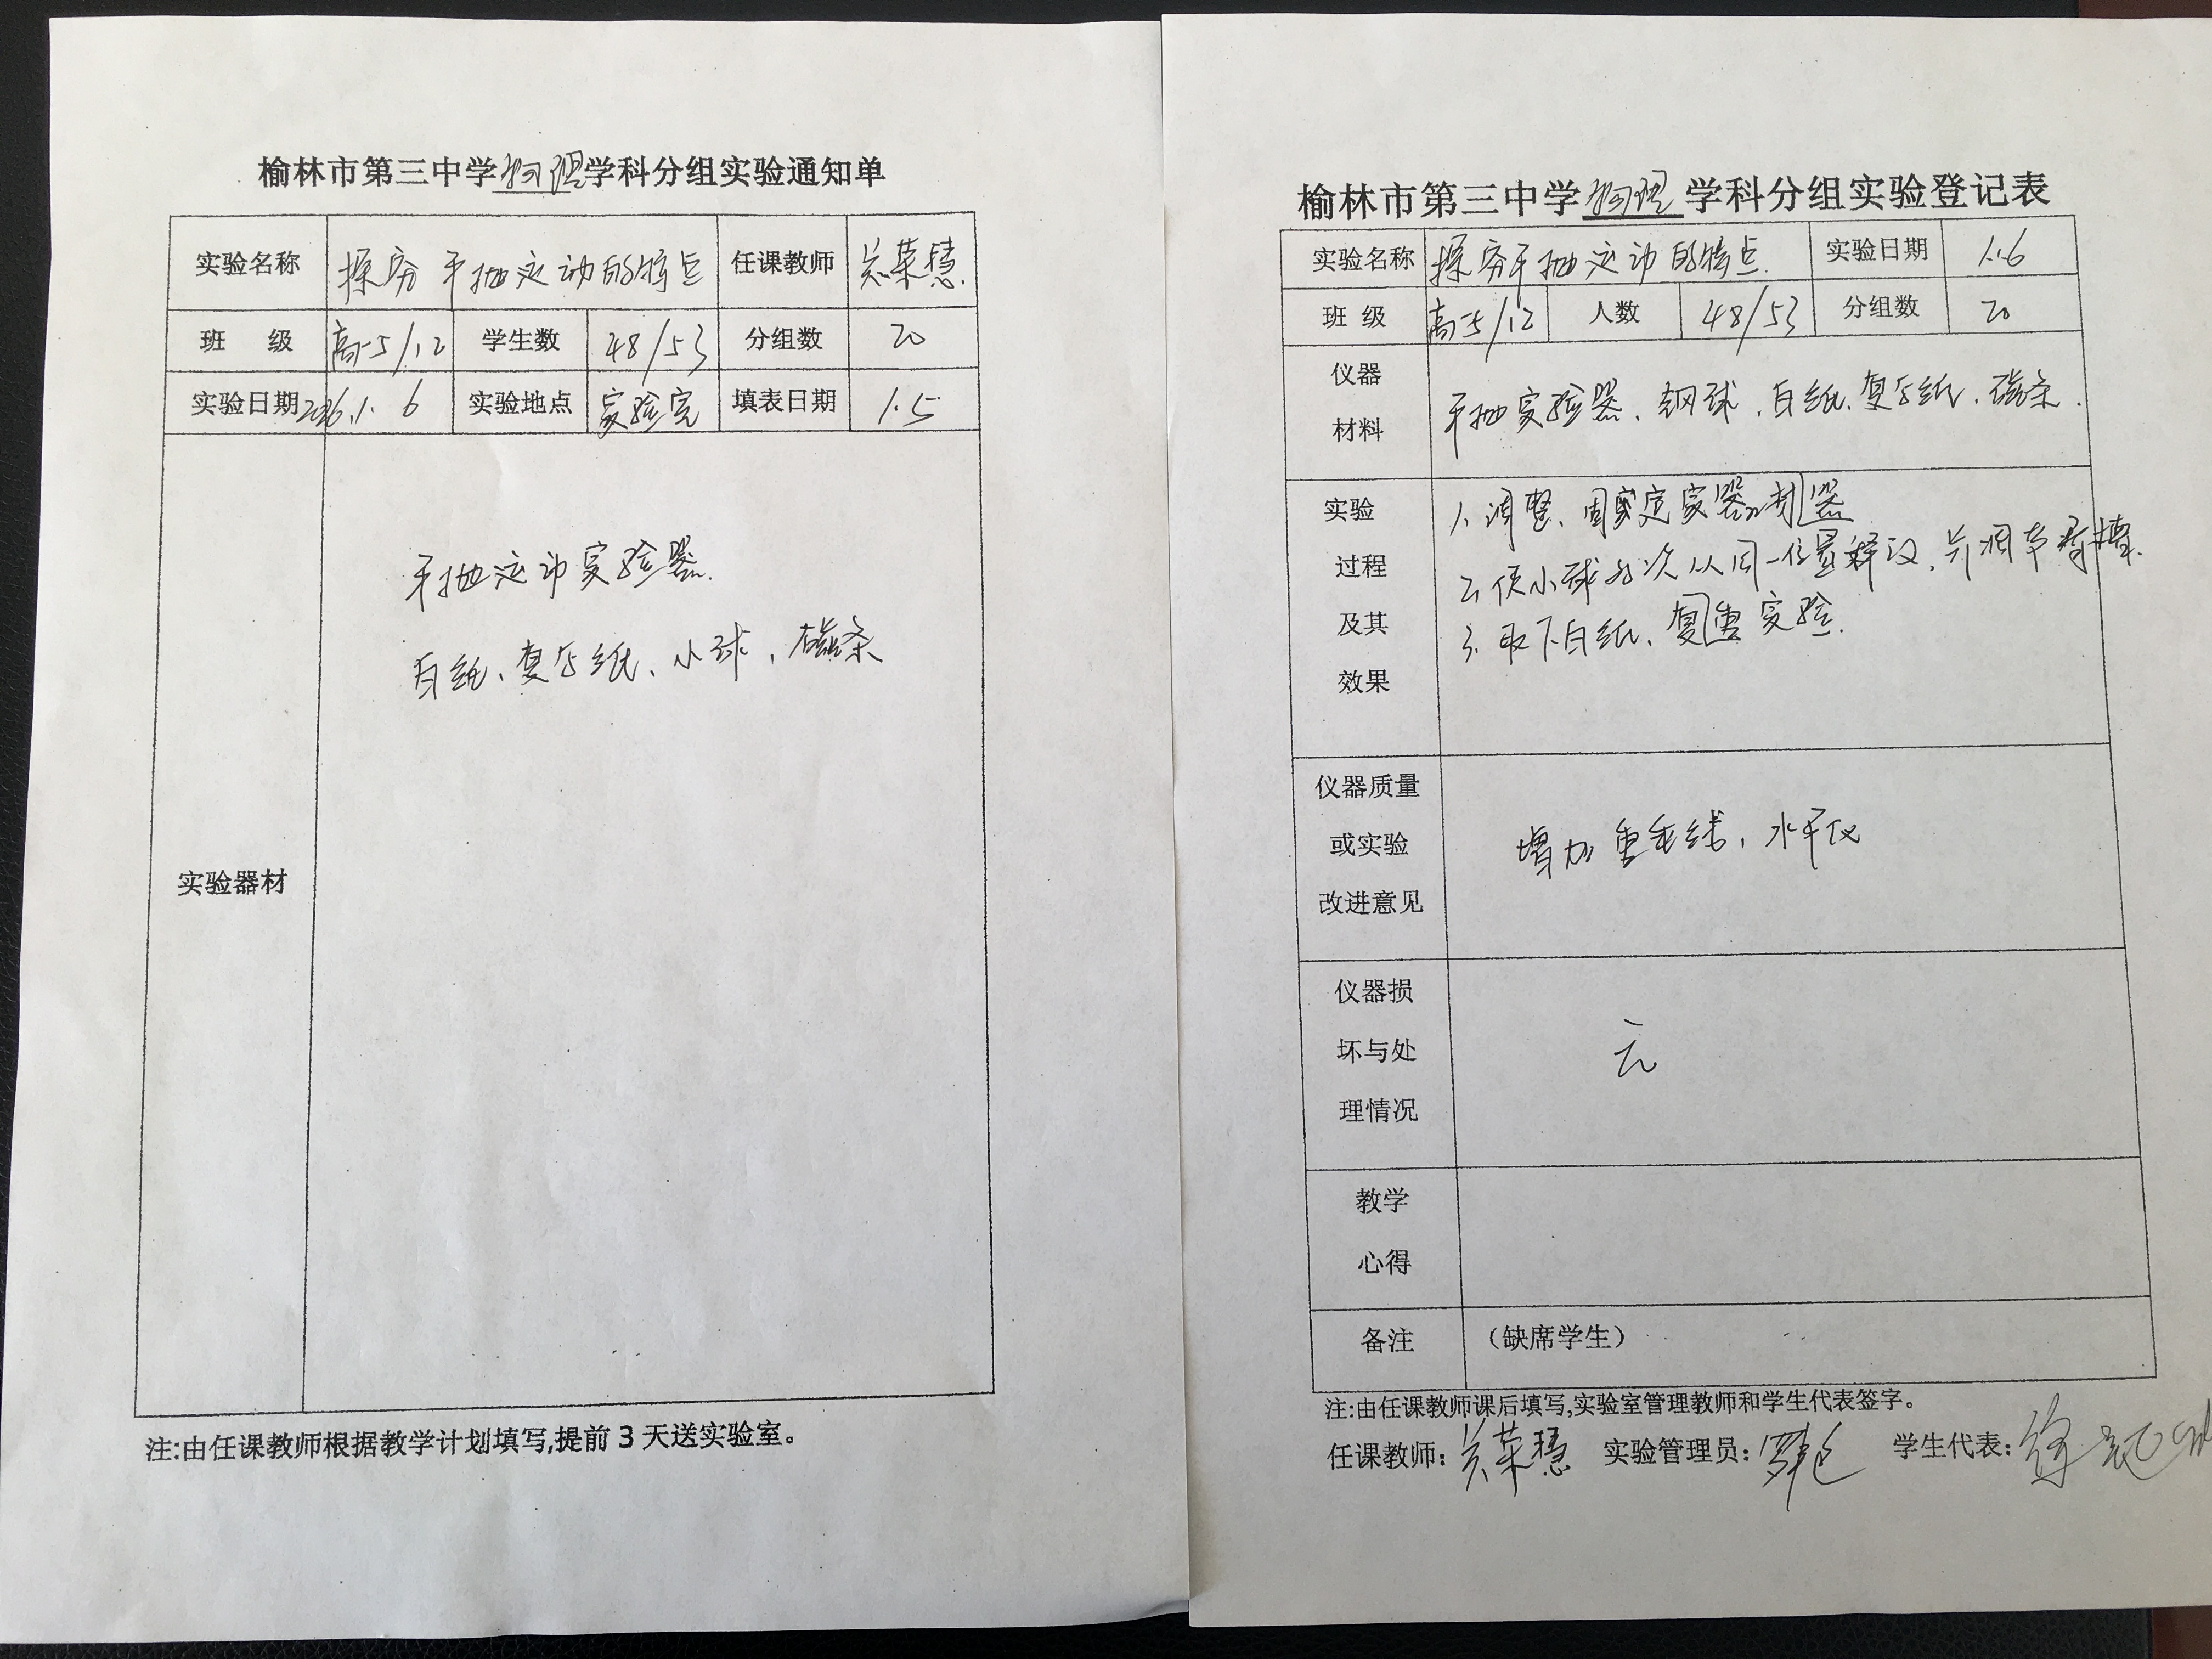 榆林市第三中学物理学科分组实验通知单
实验名称 探究平抛运动的特点 任课教师 荣慧
班 级 高一5/12 学生数 48/53 分组数 20
实验日期 2026.1.6 实验地点 实验室 填表日期 1.5
实验器材
平抛运动实验器.
白纸、复写纸、小球、磁条
注:由任课教师根据教学计划填写,提前3天送实验室。
榆林市第三中学物理学科分组实验登记表
实验名称 探究平抛运动的特点. 实验日期 1.6
班 级 高一5/12 人数 48/53 分组数 20
仪器材料 平抛实验器、钢球、白纸、复写纸、磁条.
实验过程及其效果
1、调整、固定
2、使小球每次从同一位置释放、并调节
3、取下白纸、重复实验.
仪器质量或实验改进意见 增加重垂线、水平仪
仪器损坏与处理情况 无
教学心得
备注 (缺席学生)
注:由任课教师课后填写,实验室管理教师和学生代表签字。
任课教师: 荣慧 实验管理员: 学生代表: 徐